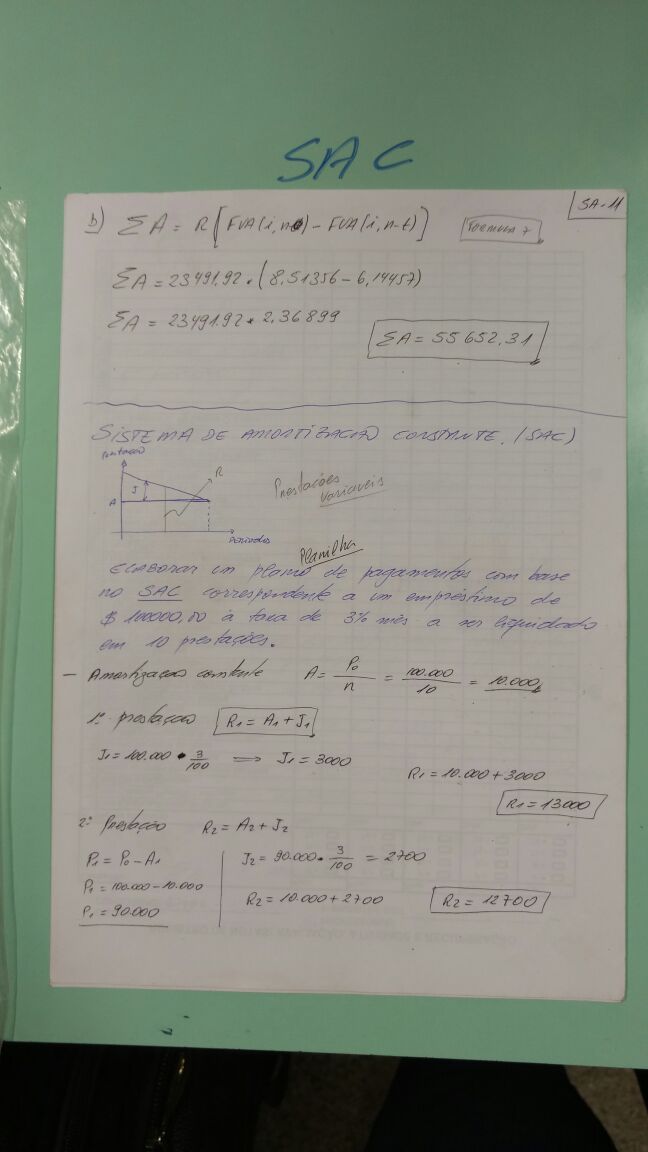 SAC
SA-11
b) ΣA = R [FVA(i,n) - FVA(i,n-t)] FORMULA 7
ΣA = 23491.92 • (8,51356 - 6,14457)
ΣA = 23491.92 • 2.36899
ΣA = 55652.31
SISTEMA DE AMORTIZAÇÃO CONSTANTE. (SAC)
Prestação
J
R
A
Períodos
Prestações
variáveis
Planilha
ELABORAR um plano de pagamentos com base
no SAC correspondente a um empréstimo de
$ 100000,00 à taxa de 3% mês a ser liquidado
em 10 prestações.
- Amortização constante A = P0/n = 100.000/10 = 10.000
1ª prestação R1 = A1 + J1
J1 = 100.000 • 3/100 => J1 = 3000
R1 = 10.000 + 3000
R1 = 13000
2ª Prestação R2 = A2 + J2
P1 = P0 - A1
P1 = 100.000 - 10.000
P1 = 90.000
J2 = 90.000 • 3/100 = 2700
R2 = 10.000 + 2700
R2 = 12700